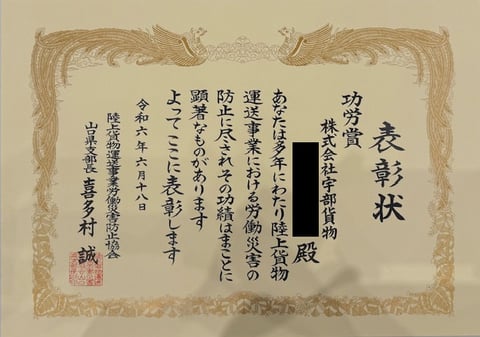 表彰状
功労賞
株式会社宇部貨物
殿
あなたは多年にわたり陸上貨物
運送事業における労働災害の
防止に尽されその功績はまことに
顕著なものがあります
よってここに表彰します
令和六年六月十八日
陸上貨物運送事業労働災害防止協会
山口県支部長 喜多村 誠